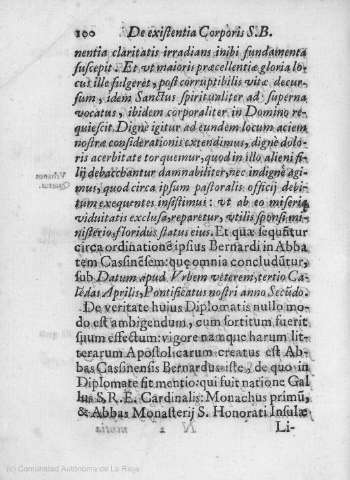 100 De existentia Corporis S.B.
nentia claritatis irradians inibi fundamenta
suscepit. Et vt maioris præcellentiæ gloria lo-
cus ille fulgeret, post corruptibilis vitæ decur-
sum, idem Sanctus spiritualiter ad superna
vocatus, ibidem corporaliter in Domino re-
quiescit. Dignè igitur ad eundem locum aciem
nostræ considerationis extendimus, dignè dolo-
ris acerbitate torquemur, quod in illo alieni fi-
lij debacchantur damnabiliter, nec indignè agi-
mus, quod circa ipsum pastoralis officij debi-
tum exequentes insistimus: vt ab eo miseriæ
viduitatis exclusa, reparetur, vtilis sponsi mi-
nisterio, floridus status eius. Et quæ sequūtur
circa ordinationē ipsius Bernardi in Abba
tem Cassinēsem: que omnia concludūtur,
sub Datum apud Vrbem veterem, tertio Ca-
lēdas Aprilis, Pontificatus nostri anno Secūdo.
De veritate huius Diplomatis nullo mo-
do est ambigendum, cum sortitum fuerit
suum effectum: vigore namque harum lit-
terarum Apostolicarum creatus est Ab-
bas Cassinensis Bernardus iste, de quo in
Diplomate fit mentio: qui fuit natione Gal
lus S.R.E. Cardinalis: Monachus primū,
& Abbas Monasterij S. Honorati Insulæ
Li-
(c) Comunidad Autónoma de La Rioja